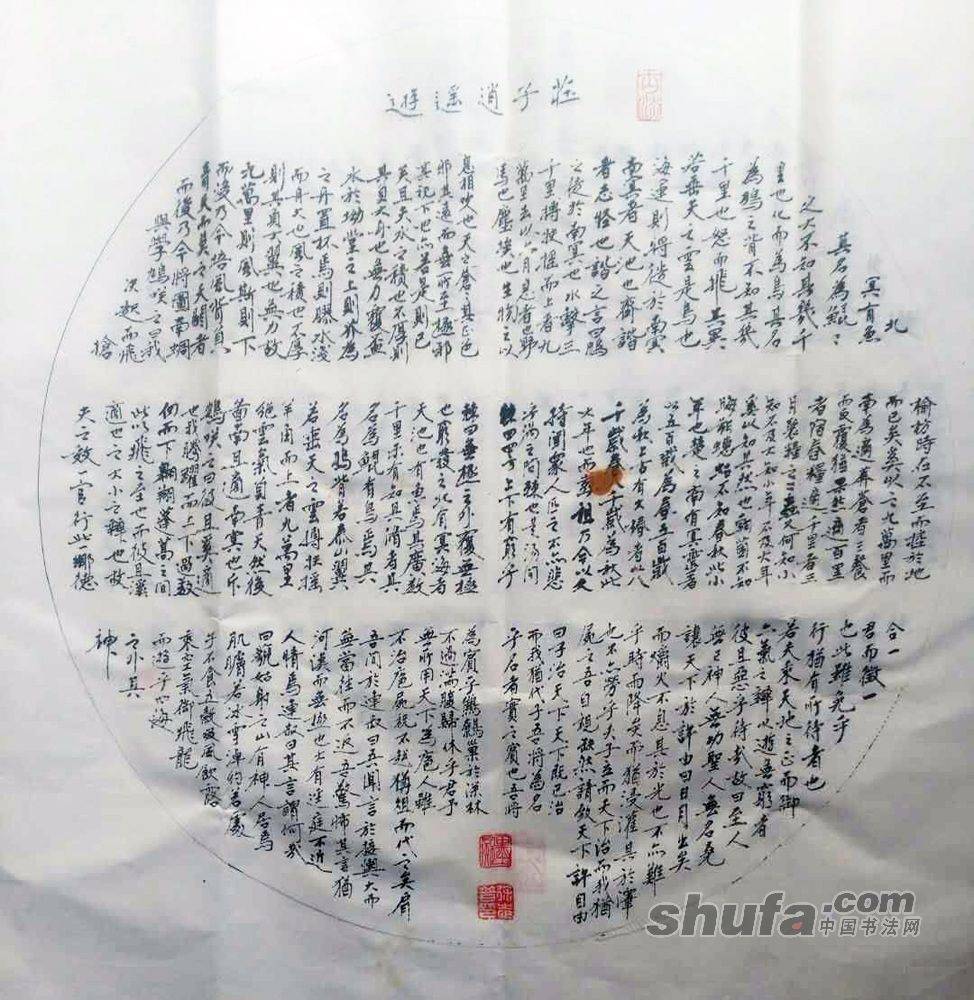 莊子逍遥遊
北
冥有魚
其名為鯤〻
之大不知其幾千
里也化而為鳥其名
為鵬〻之背不知其幾
千里也怒而飛其翼
若垂天之雲是鳥也
海運則將徙於南冥
南冥者天池也齊諧
者志怪也諧之言曰鵬
之徙於南冥也水擊三
千里摶扶搖而上者九
萬里去以六月息者也野
馬也塵埃也生物之以
息相吹也天之蒼〻其正色
邪其遠而無所至極邪
其視下也亦若是則已
矣且夫水之積也不厚則
其負大舟也無力覆盃
水於坳堂之上則芥為
之舟置杯焉則膠水淺
而舟大也風之積也不厚
則其負大翼也無力故
九萬里則風斯在下
而後乃今培風背負
青天而莫之夭閼者
而後乃今將圖南蜩
與學鳩笑之曰我
決起而飛
搶
榆枋時在不至而控於地
而已矣奚以之九萬里而
南為適莽蒼者三餐
而反腹猶果然適百里
者宿舂糧適千里者三
月聚糧之二蟲又何知小
知不及大知小年不及大年
奚以知其然也朝菌不知
晦朔蟪蛄不知春秋此小
年也楚之南有冥靈者
以五百歲為春五百歲
為秋上古有大椿者以八
千歲春八千歲為秋此
大年也而彭祖乃今以久
特聞眾人匹之不亦悲
乎湯之問棘也是湯問
棘曰四方上下有窮乎
棘曰無極之外復無極
也窮發之北有冥海者
天池也有魚焉其廣數
千里未有知其脩者其
名為鯤有鳥焉其
名為鵬背若泰山翼
若垂天之雲摶扶搖
羊角而上者九萬里
絕雲氣負青天然後
圖南且適南冥也斥
鴳笑之曰彼且奚適
也我騰躍而上不過數
仞而下翱翔蓬蒿之間
此亦飛之至也而彼且奚
適也此大小之辯也故
夫知效一官行比鄉德
合一
君而徵一
也此雖免乎
行猶有所待者也
若夫乘天地之正而御
六氣之辯以遊無窮者
彼且惡乎待哉故曰至人
無己神人無功聖人無名堯
讓天下於許由曰日月出矣
而爝火不息其於光也不亦難
乎時雨降矣而猶浸灌其於澤
也不亦勞乎夫子立而天下治而我猶
尸之吾自視缺然請致天下許由
曰子治天下天下既已治
而我猶代子吾將為名
乎名者實之賓也吾將
為賓乎鷦鷯巢於深林
不過滿腹歸休乎君予
無所用天下為庖人雖
不治庖尸祝不越樽俎而代之矣肩
吾問於連叔曰吾聞言於接輿大而
無當往而不返吾驚怖其言猶
河漢而無極也大有逕庭不近
人情焉連叔曰其言謂何哉
曰藐姑射之山有神人居焉
肌膚若冰雪淖約若處
子不食五穀吸風飲露
乘雲氣御飛龍
而遊乎四海
之外其
神
shufa.com
中国书法网